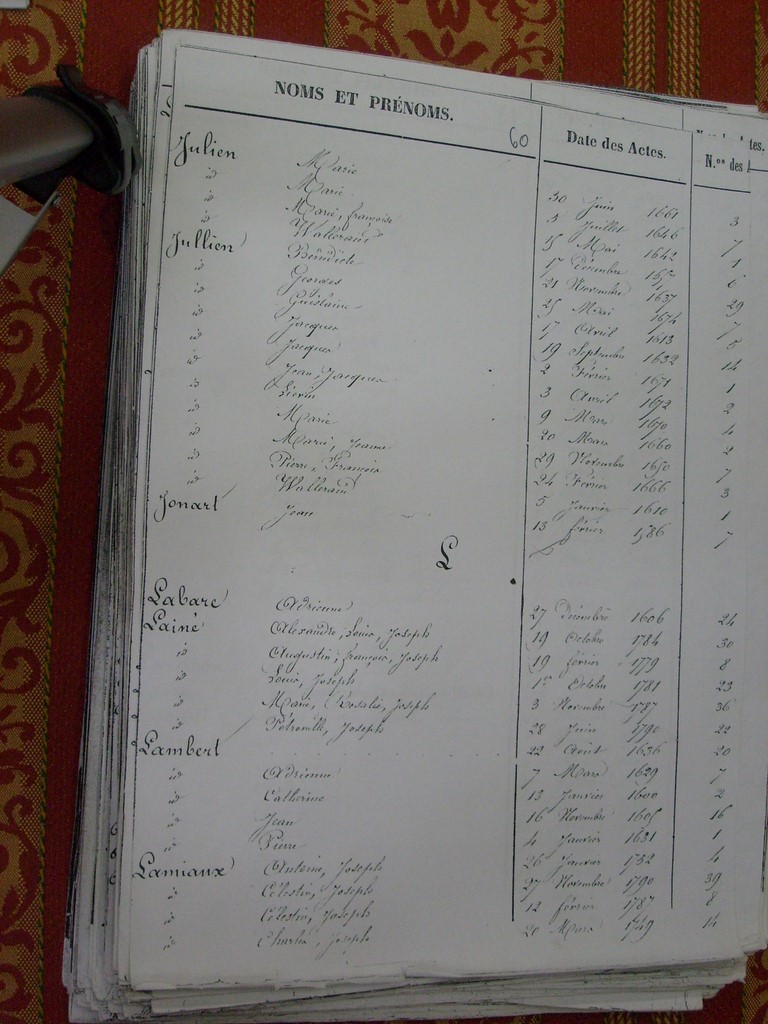 NOMS ET PRÉNOMS. 60 Date des Actes. N.os des
Julien Marie 30 Juin 1661 3
id Marie 5 Juillet 1646 7
id Marie, françoise 15 Mai 1642 1
id Wallerand 17 Décembre 6
Jullien Bénédicte 21 Novembre 1637 29
id Georges 25 Mai 1674 7
id Guislaine 17 Avril 1613 5
id Jacques 19 Septembre 1632 14
id Jacques 2 Février 1671 1
id Jean, Jacques 3 Avril 1672 2
id Liévin 9 Mars 1670 4
id Marie 20 Mars 1660 2
id Marie, Jeanne 29 Novembre 1650 7
id Pierre, François 24 Février 1666 3
id Wallerand 5 Janvier 1610 1
Jonart Jean 13 février 1586 7
L
Labare Adrienne 27 Décembre 1606 24
Lainé Alexandre, Louis, Joseph 19 Octobre 1784 30
id Augustin, françois, Joseph 19 février 1779 8
id Louis, Joseph 1er Octobre 1781 23
id Marie, Rosalie, Joseph 3 Novembre 1787 36
id Pétronille, Joseph 28 Juin 1790 22
Lambert 22 Août 1636 20
id Adrienne 7 Mars 1629 7
id Catherine 13 Janvier 1600 2
id Jean 16 Novembre 1605 16
id Pierre 4 Janvier 1631 1
Lamiaux Antoine, Joseph 26 Janvier 1752 4
id Célestin, Joseph 27 Novembre 1790 39
id Célestin, Joseph 12 février 1787 8
id Charles, Joseph 20 Mars 1749 14